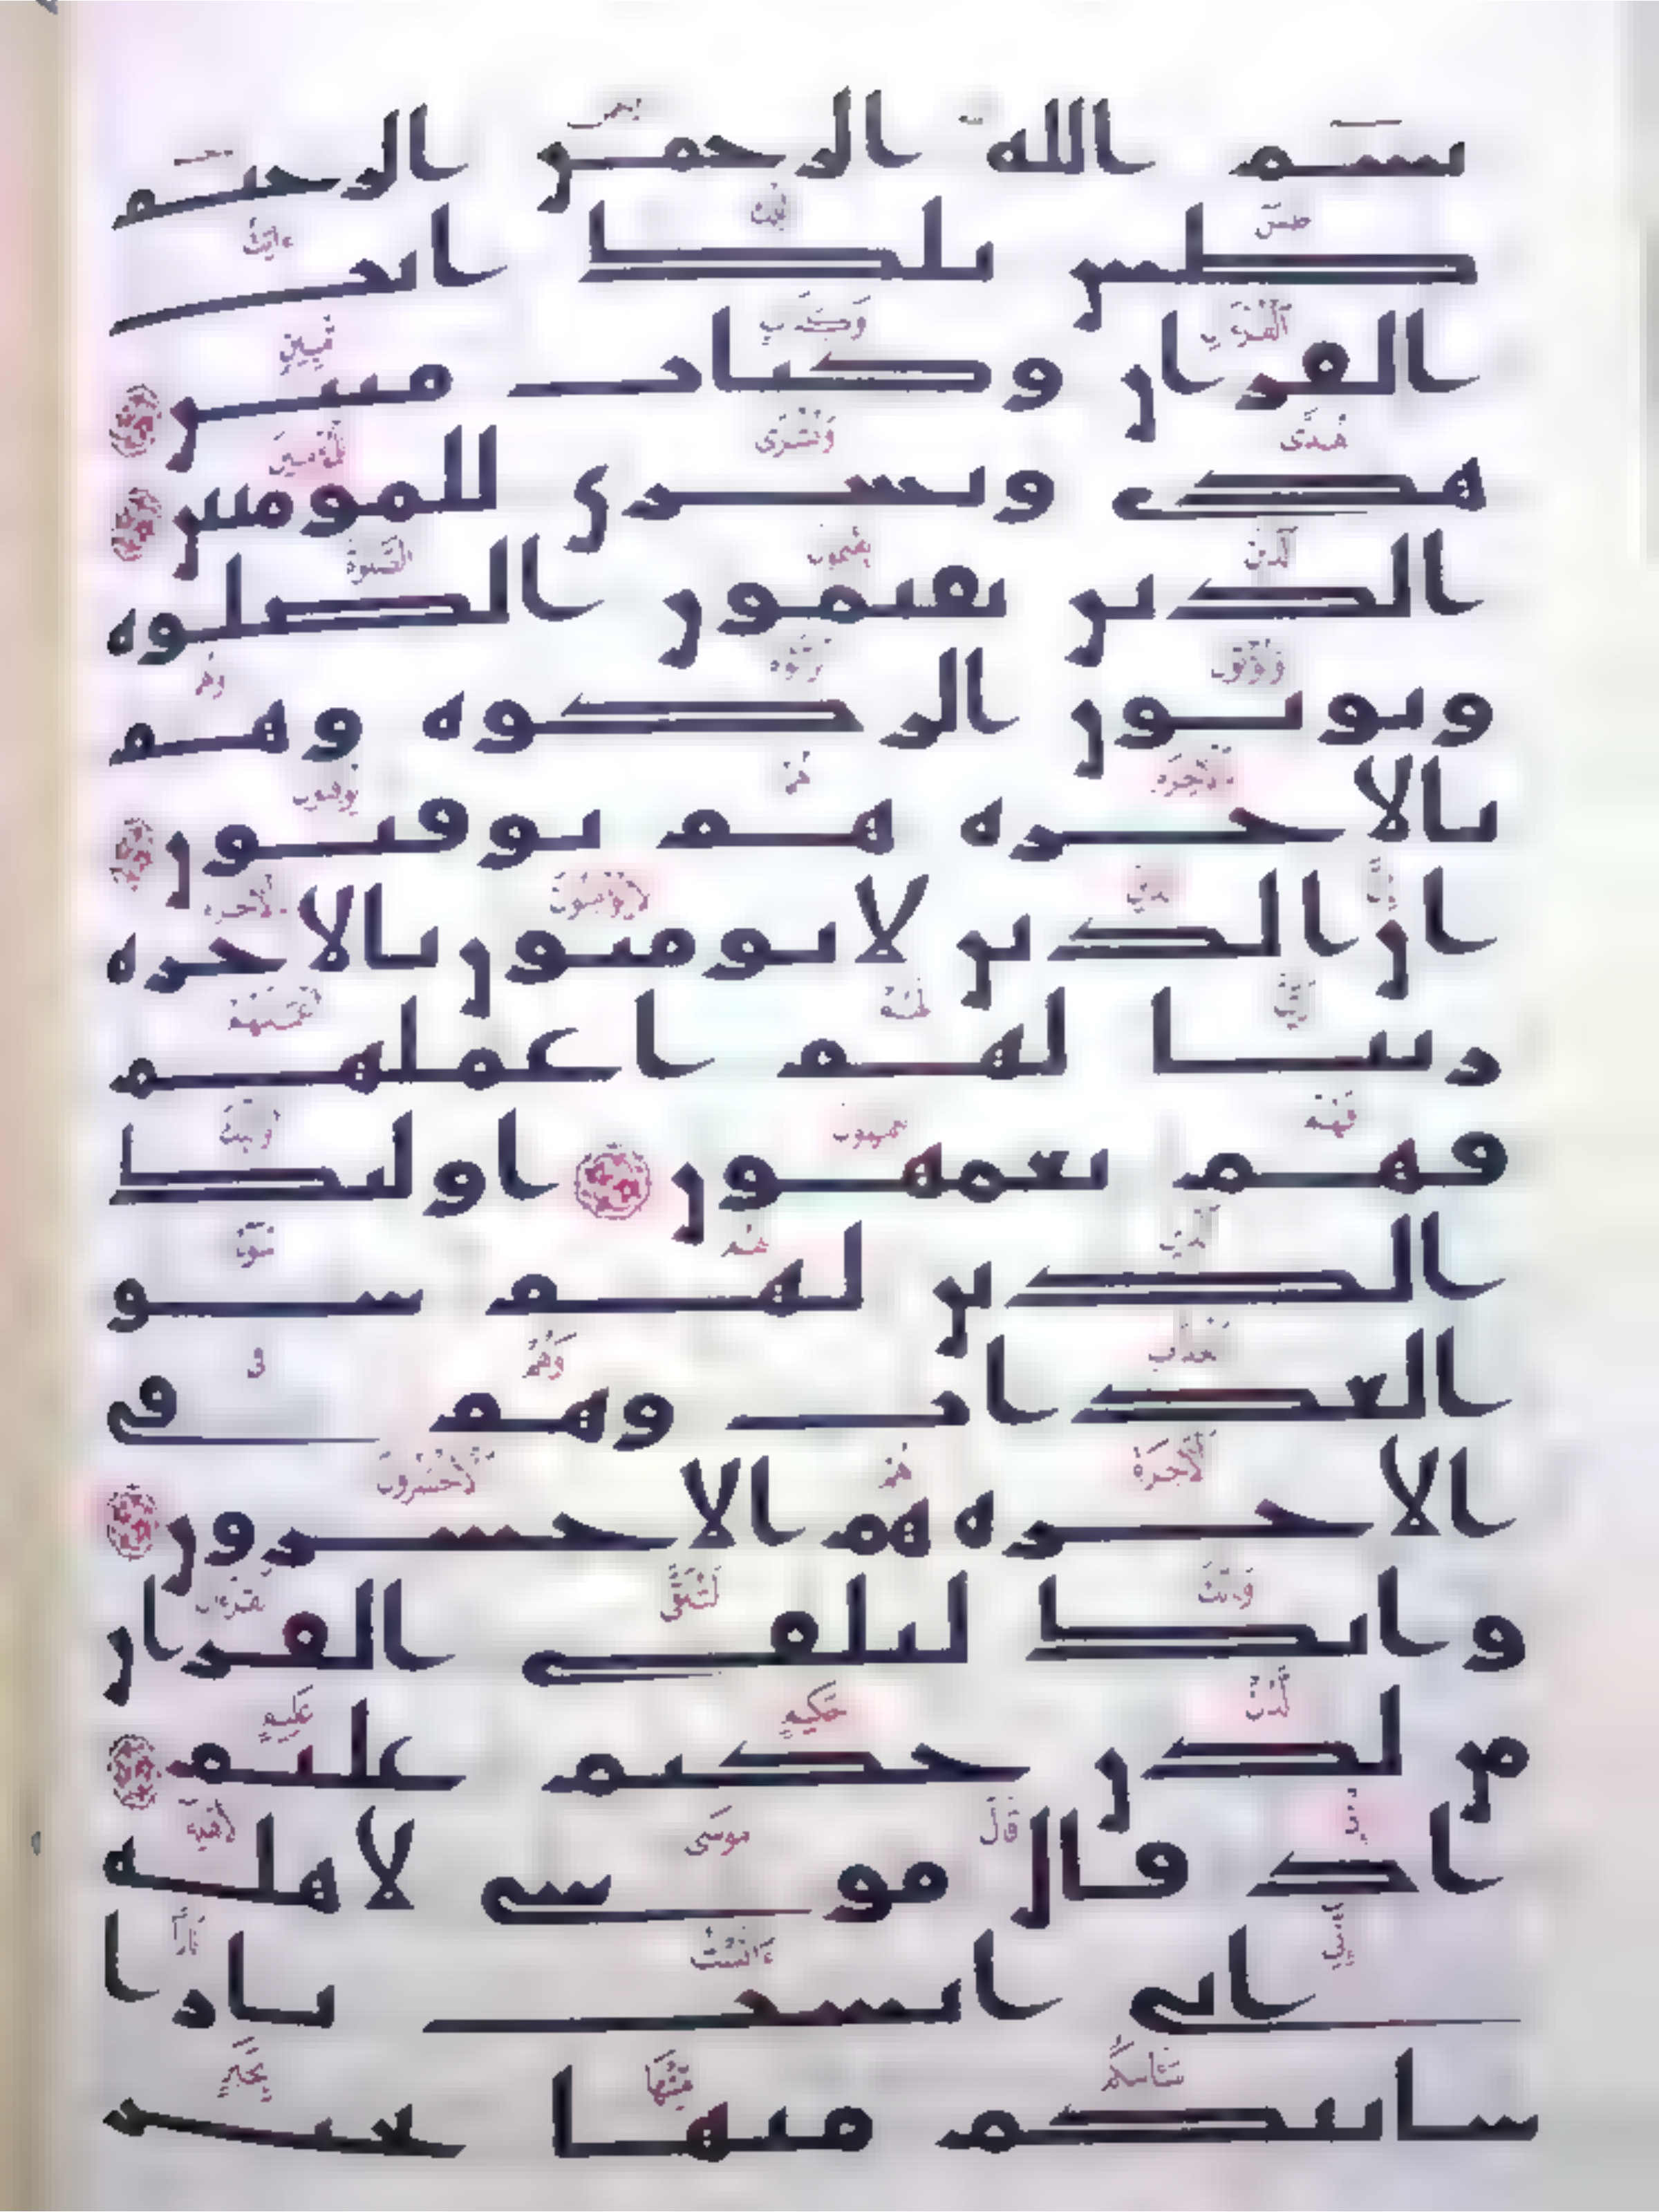 بسم الله الرحمن الرحيم
طس تلك ءايت
القرءان وكتاب مبين
هدى وبشرى للمؤمنين
الذين يقيمون الصلوة
ويؤتون الزكوة وهم
بالاخرة هم يوقنون
ان الذين لا يؤمنون بالاخرة
زينا لهم اعملهم
فهم يعمهون اولئك
الذين لهم سوء
العذاب وهم في
الاخرة هم الاخسرون
وانك لتلقى القرءان
من لدن حكيم عليم
اذ قال موسى لاهله
اني ءانست نارا
سءاتيكم منها بخبر